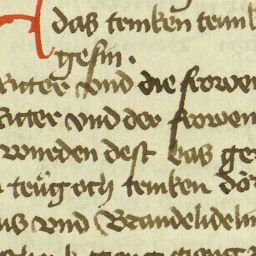 das trinken trink
gesin .
Ritter vnd die frowen
Ritter vnd der frowen
wurden dest bas ge
trůg och trinken dar
us vnd Brandelidelin